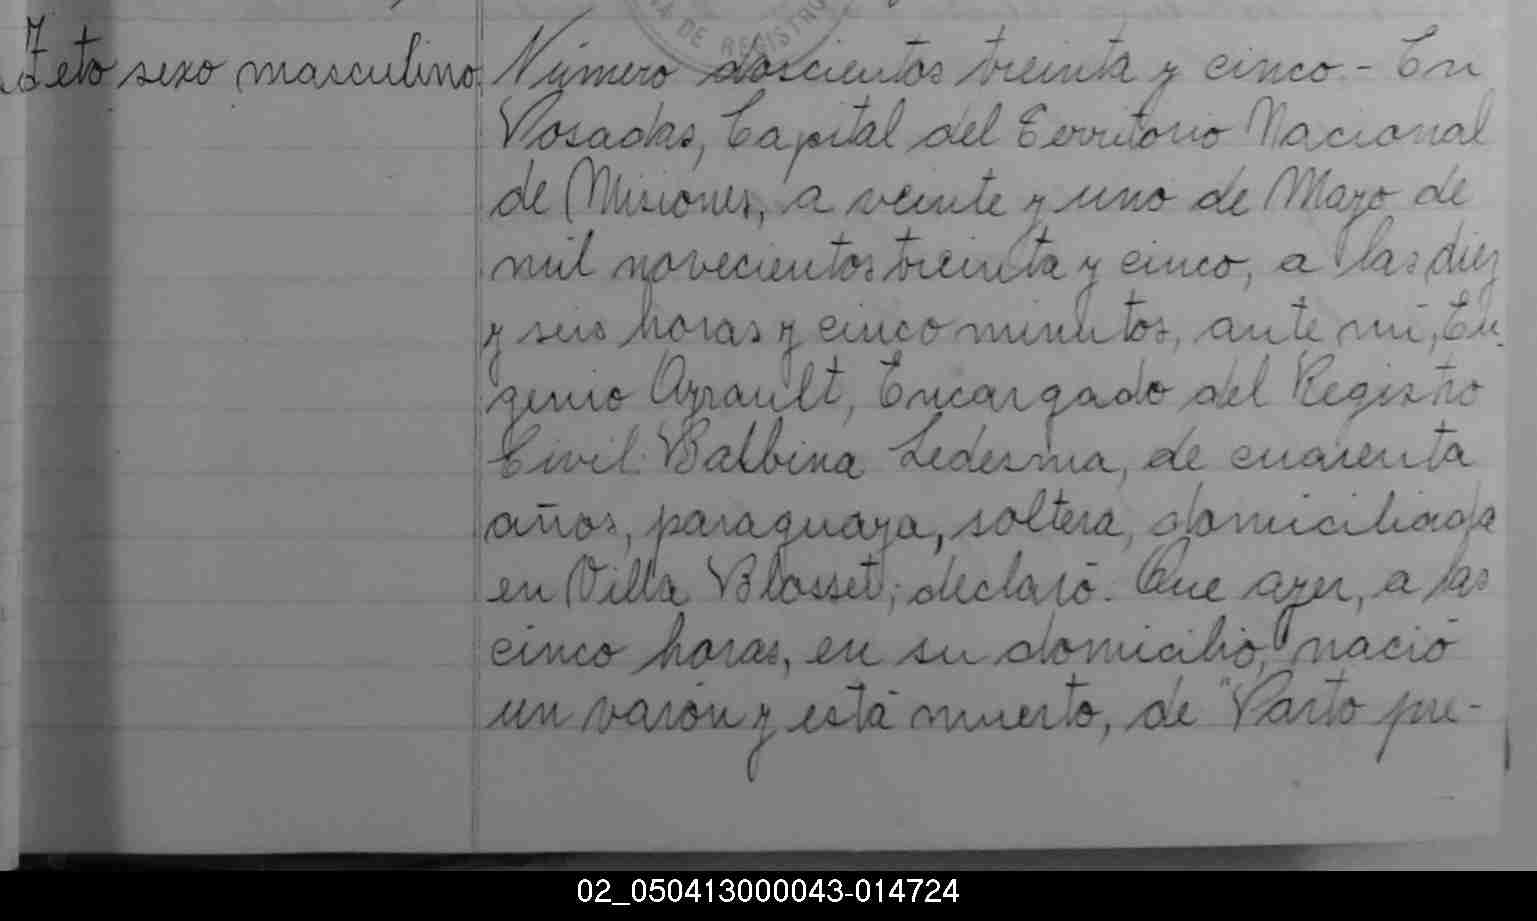 DE REGISTRO
Feto sexo masculino
Número doscientos treinta y cinco.- En
Posadas, Capital del Territorio Nacional
de Misiones, a veinte y uno de Mayo de
mil novecientos treinta y cinco, a las diez
y seis horas y cinco minutos, ante mí, Eu-
genio Ayrault, Encargado del Registro
Civil. Balbina Ledesma, de cuarenta
años, paraguaya, soltera, domiciliada
en Villa Blosset; declaró. Que ayer, a las
cinco horas, en su domicilio, nació
un varón y está muerto, de "Parto pre-
02_050413000043-014724